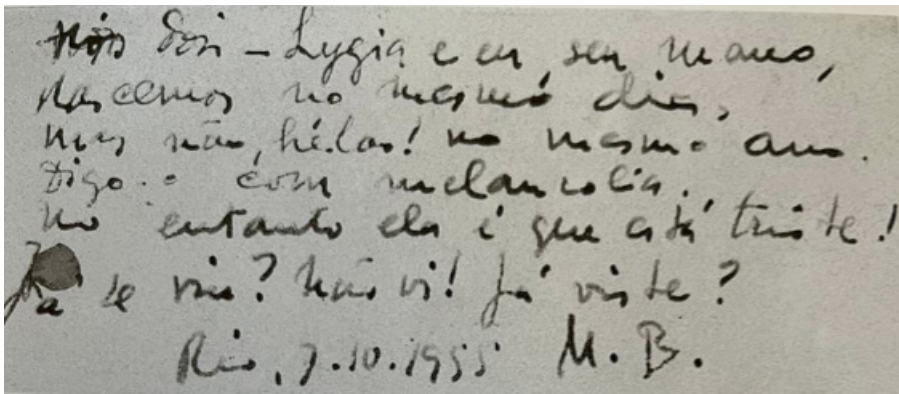 Nós dois – Lygia e eu, seu mano,
nascemos no mesmo dia,
mas não, hélas! no mesmo ano.
Digo-o com melancolia.
No entanto ela é que está triste!
Já se viu? Não vi! Já viste?
Rio, 7.10.1955 M. B.